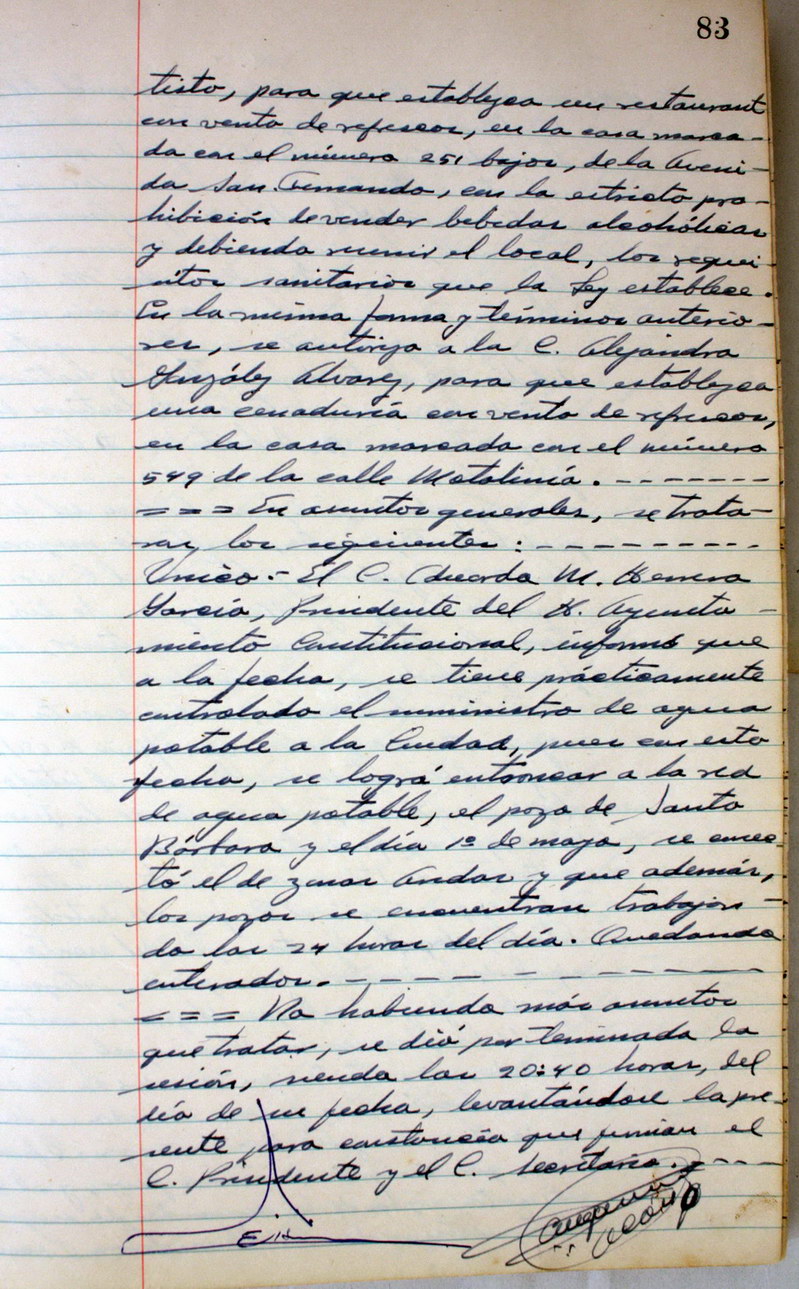 83
tisto, para que establezca un restaurant
con venta de refrescos, en la casa marca-
da con el número 251 bajos, de la Aveni-
da San Fernando, con la estricta pro-
hibición de vender bebidas alcohólicas
y debiendo reunir el local, los requi-
sitos sanitarios que la Ley establece.
En la misma forma y términos anterio-
res, se autoriza a la C. Alejandra
González Alvarez, para que establezca
una cenaduría con venta de refrescos,
en la casa marcada con el número
549 de la calle Motolinía. - - - - - - -
= = = En asuntos generales, se trata-
ron los siguientes : - - - - - - - - -
Unico.- El C. Eduardo M. Herrera
García, Presidente del H. Ayunta-
miento Constitucional, informó que
a la fecha, se tiene prácticamente
controlado el suministro de agua
potable a la Ciudad, pues con esta
fecha, se logró entroncar a la red
de agua potable, el pozo de Santa
Bárbara y el día 1º de mayo, se conec-
tó el de zonas Andar y que además,
los pozos se encuentran trabajan-
do las 24 horas del día. Quedando
enterados. - - - - - - - - - - -
= = = No habiendo más asuntos
que tratar, se dió por terminada la
sesión, siendo las 20:40 horas, del
día de su fecha, levantándose la pre-
sente para constancia que firman el
C. Presidente y el C. Secretario. - - - -